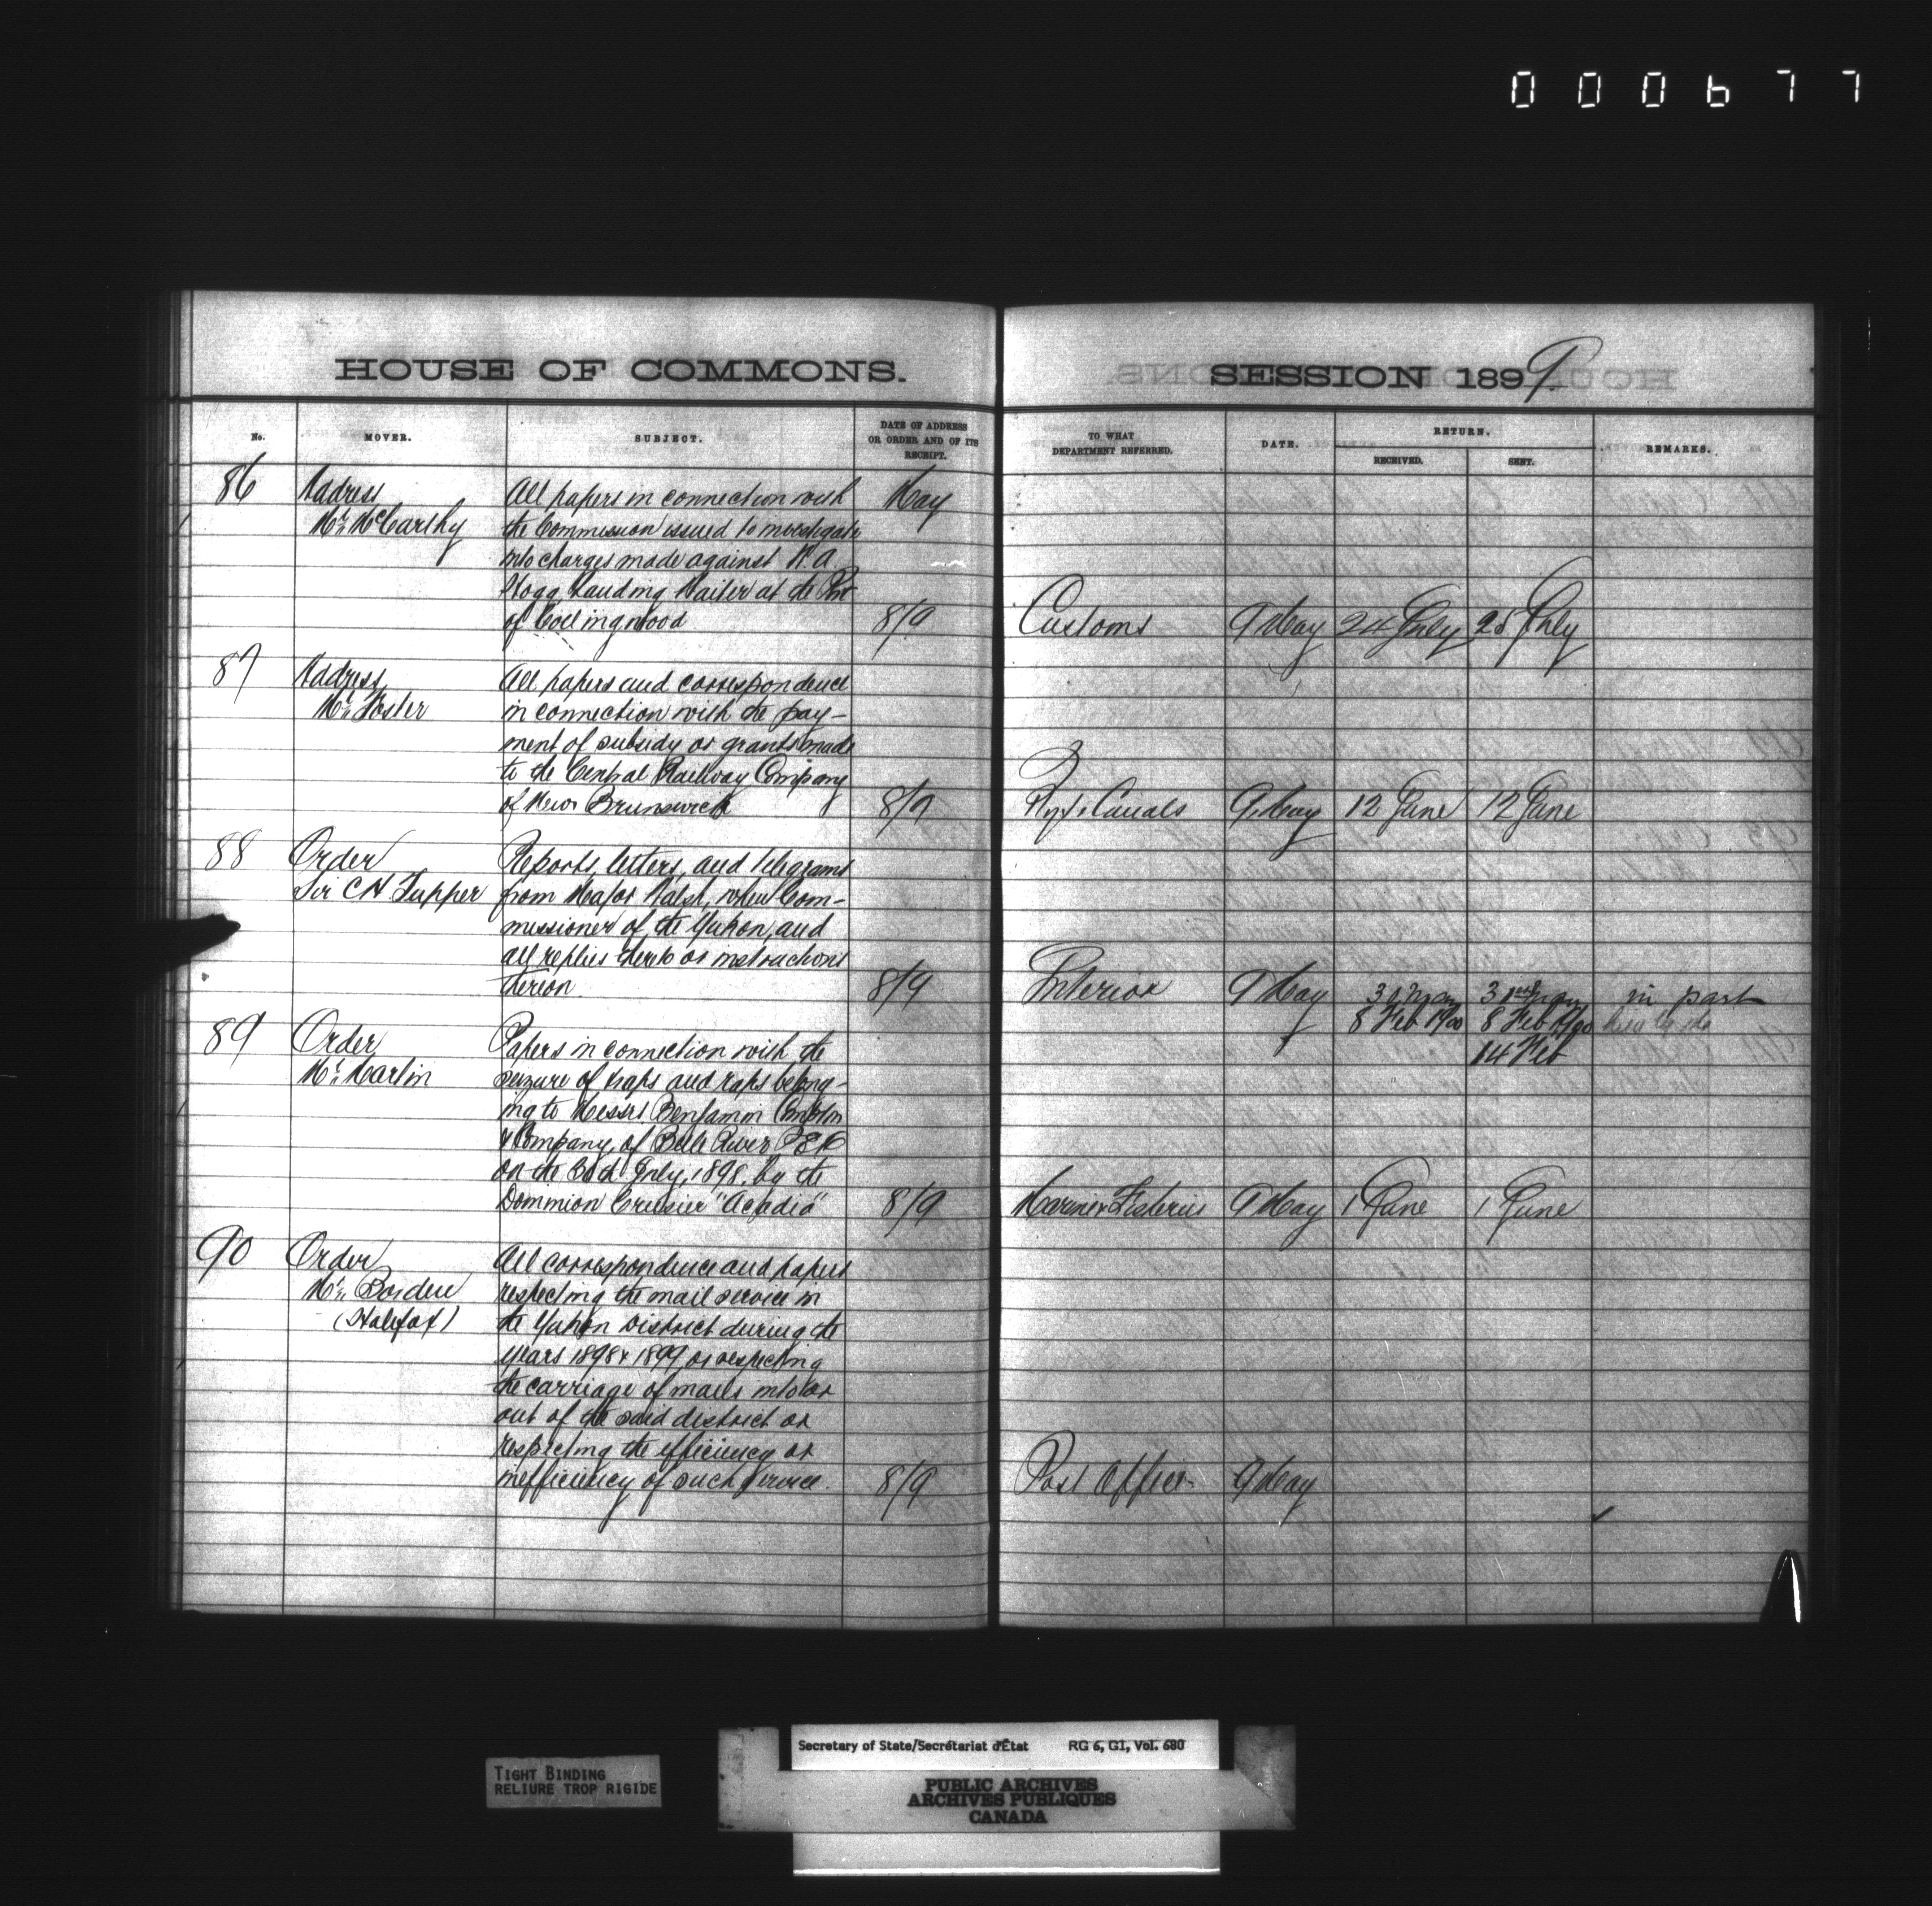 000677
HOUSE OF COMMONS.
No. MOVER. SUBJECT. DATE OF ADDRESS OR ORDER AND OF ITS RECEIPT.
86 Address All papers in connection with May
Mr. McCarthy the Commission issued to investigate
into charges made against
Hogg Landing Waiter at the Port
of Collingwood 8/9
87 Address All papers and correspondence
Mr. Foster in connection with the pay-
ment of subsidy or grants made
to the Central Railway Company
of New Brunswick 8/9
88 Order Reports, letters, and telegrams
Sir C H Tupper from Major Walsh, when Com-
missioner of the Yukon, and
all replies thereto or instructions
thereon. 8/9
89 Order Papers in connection with the
Mr. Martin seizure of traps and belong-
ing to Messrs Benjamin
& Company, of Belle River P E I
on the July, 1898, by the
Dominion Cruiser "Acadia" 8/9
90 Order All correspondence and papers
Mr. Borden respecting the mail service in
(Halifax) the Yukon District during the
years 1898 & 1899 or respecting
the carriage of mails into or
out of the said district or
respecting the efficiency or
inefficiency of such service. 8/9
SESSION 1899.
TO WHAT DEPARTMENT REFERRED. DATE. RETURN. RECEIVED. SENT. REMARKS.
Customs 9 May 24 July 25 July
Ry & Canals 9 May 12 June 12 June
Interior 9 May 31 May 31st May in part
8 Feb 1900 8 Feb 1900
14 Feb
Marine & Fisheries 9 May 1 June 1 June
Post Office 9 May
Secretary of State/Secrétariat d'État RG 6, G1, Vol. 680
TIGHT BINDING
RELIURE TROP RIGIDE
PUBLIC ARCHIVES
ARCHIVES PUBLIQUES
CANADA